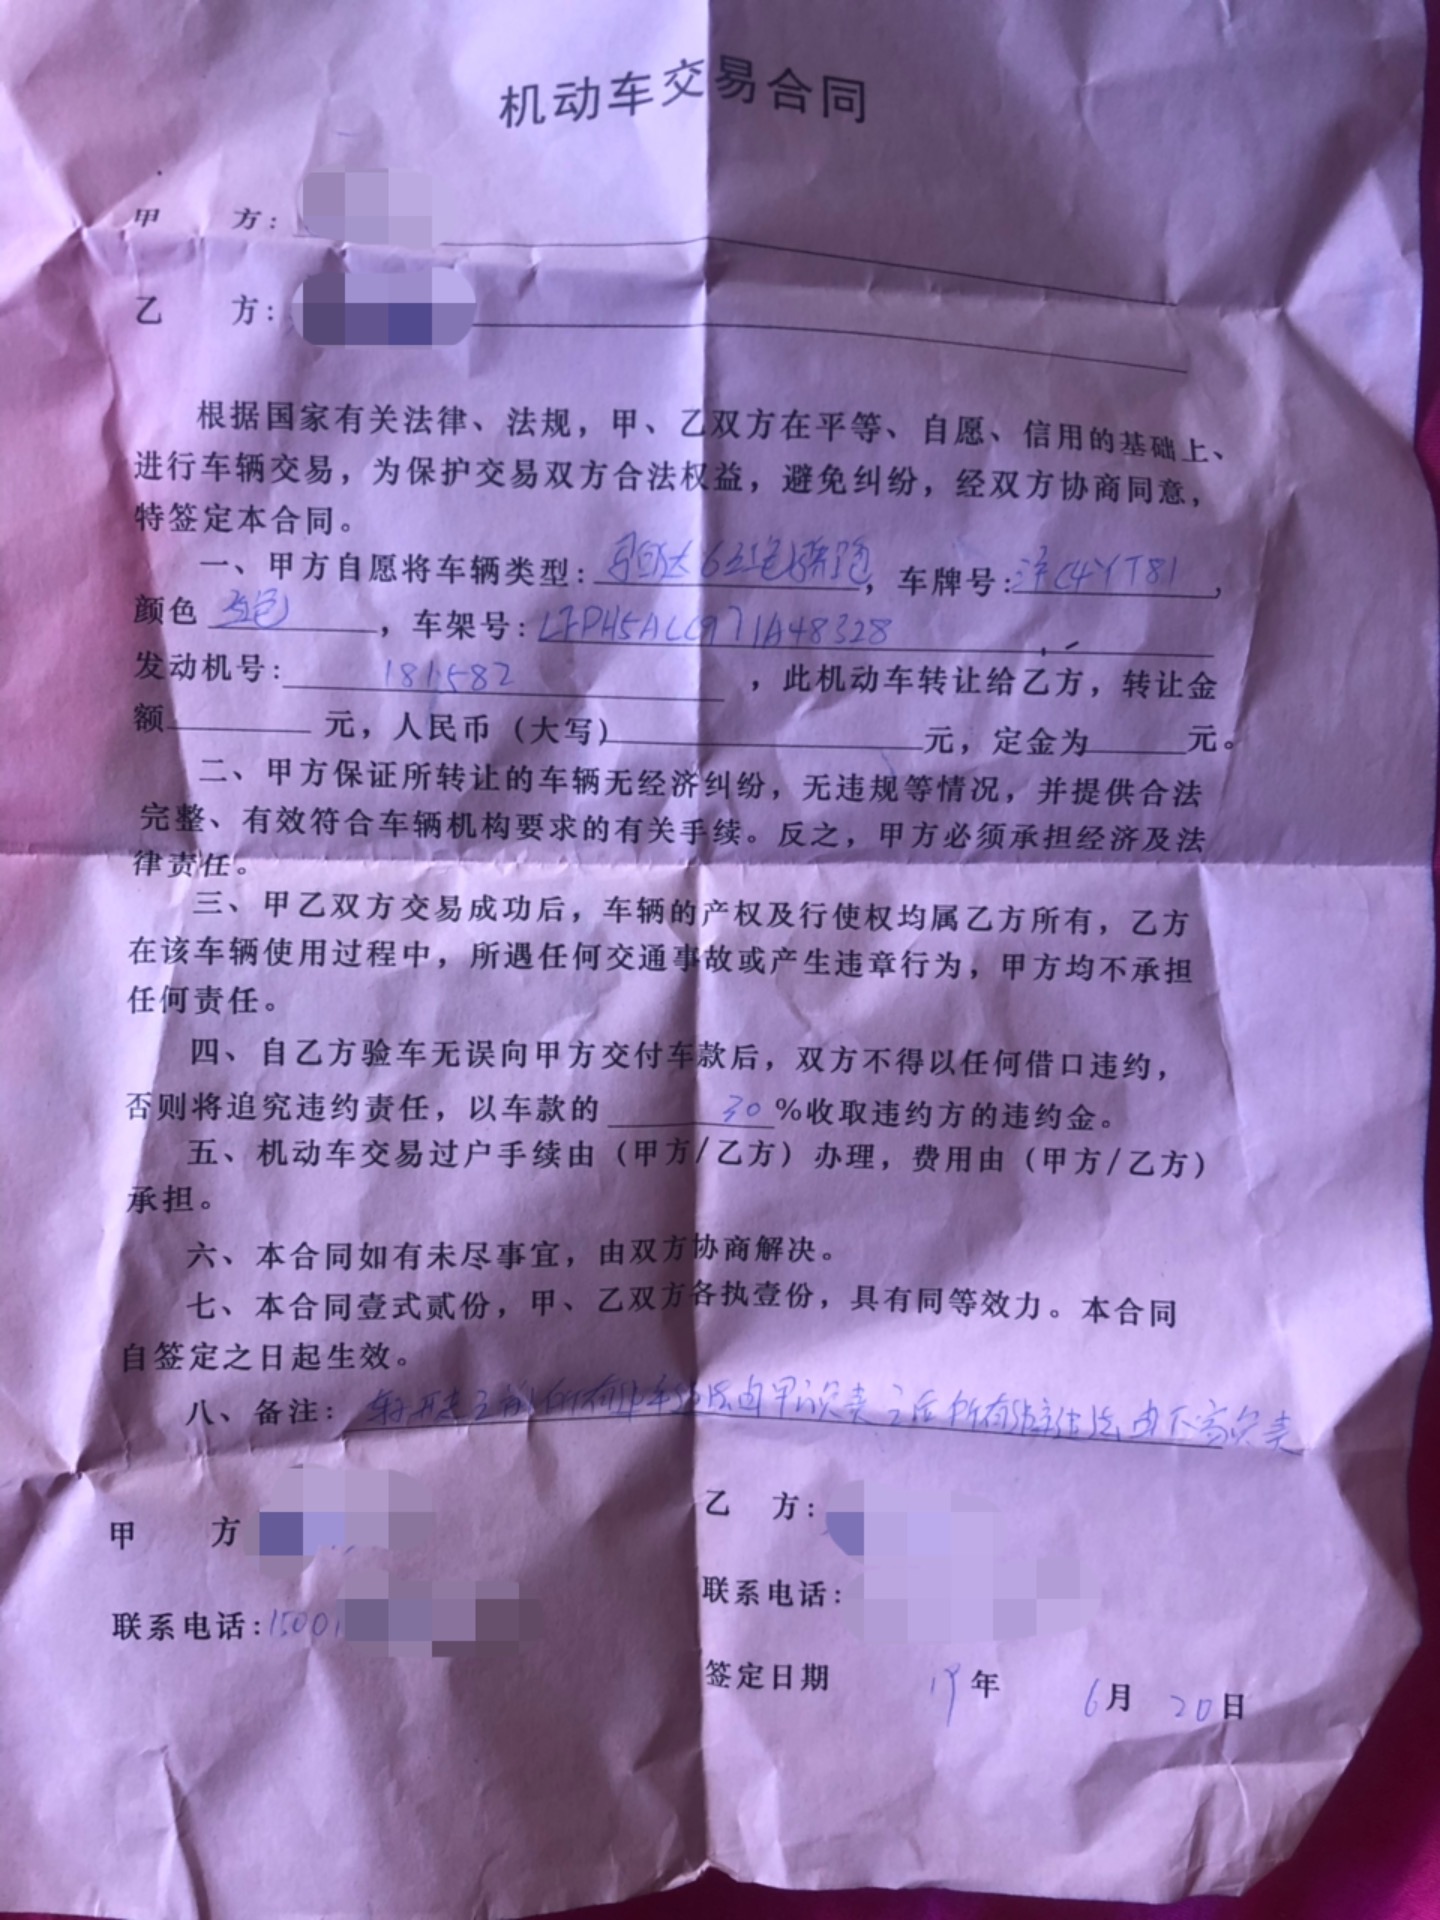 机动车交易合同
甲 方：
乙 方：
根据国家有关法律、法规，甲、乙双方在平等、自愿、信用的基础上、
进行车辆交易，为保护交易双方合法权益，避免纠纷，经双方协商同意，
特签定本合同。
一、甲方自愿将车辆类型：马自达6 轿跑，车牌号：沪C4YT81，
颜色 ，车架号：LFPH5ACC971A48328
发动机号： 181582 ，此机动车转让给乙方，转让金
额 元，人民币（大写） 元，定金为 元。
二、甲方保证所转让的车辆无经济纠纷，无违规等情况，并提供合法
完整、有效符合车辆机构要求的有关手续。反之，甲方必须承担经济及法
律责任。
三、甲乙双方交易成功后，车辆的产权及行使权均属乙方所有，乙方
在该车辆使用过程中，所遇任何交通事故或产生违章行为，甲方均不承担
任何责任。
四、自乙方验车无误向甲方交付车款后，双方不得以任何借口违约，
否则将追究违约责任，以车款的 30 %收取违约方的违约金。
五、机动车交易过户手续由（甲方/乙方）办理，费用由（甲方/乙方）
承担。
六、本合同如有未尽事宜，由双方协商解决。
七、本合同壹式贰份，甲、乙双方各执壹份，具有同等效力。本合同
自签定之日起生效。
八、备注： 之前所有 由甲方负责 之后所有 由 负责
甲 方 乙 方：
联系电话：15001 联系电话：
签定日期 19年 6月 20日